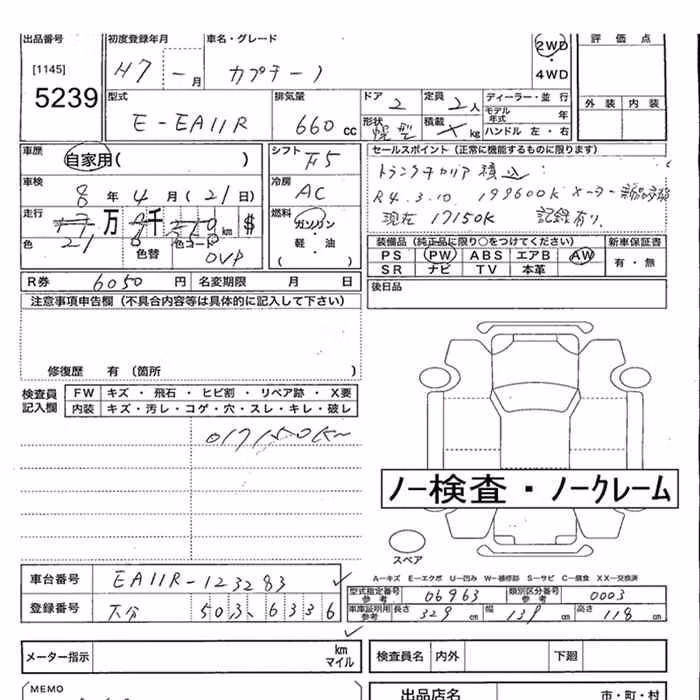 出品番号 初度登録年月 車名・グレード 2WD 評価点
[1145] H7 年 一 月 カプチーノ ・
4WD
5239 型式 排気量 ドア 2 定員 2人 ディーラー・並行 外装 内装
E-EA11R 660cc 形状 幌型 積載 Xkg モデル年式 年
ハンドル 左・右
車歴 自家用( ) シフト F5 セールスポイント (正常に機能するものに限ります)
車検 8年4月(21日) 冷房 AC トランクキャリア積込
R4.3.10. 199600K メーター
走行 万 千 km $ 燃料 ガソリン・軽・油( ) 現在 17150K 記録有り
色 21 色替 色コード 0VP 装備品 (純正品に限り○をつけてください) 新車保証書
PS PW ABS エアB AW 有・無
SR ナビ TV 本革
R券 6050円 名変期限 月 日 後日品
注意事項申告欄(不具合内容等は具体的に記入して下さい)
修復歴 有(箇所 )
検査員記入欄 FW キズ・飛石・ヒビ割・リペア跡・X要
内装 キズ・汚レ・コゲ・穴・スレ・キレ・破レ
017150Km
ノー検査・ノークレーム
スペア
A―キズ E―エクボ U―凹み W―補修跡 S―サビ C―腐食 XX―交換済
車台番号 EA11R-123283 型式指定番号 参考 06963 類別区分番号 参考 0003
登録番号 大分 503 6336 車庫証明用 参考 長さ 329cm 幅 139cm 高さ 118cm
メーター指示 km マイル 検査員名 内外 下廻
MEMO 出品店名 市・町・村